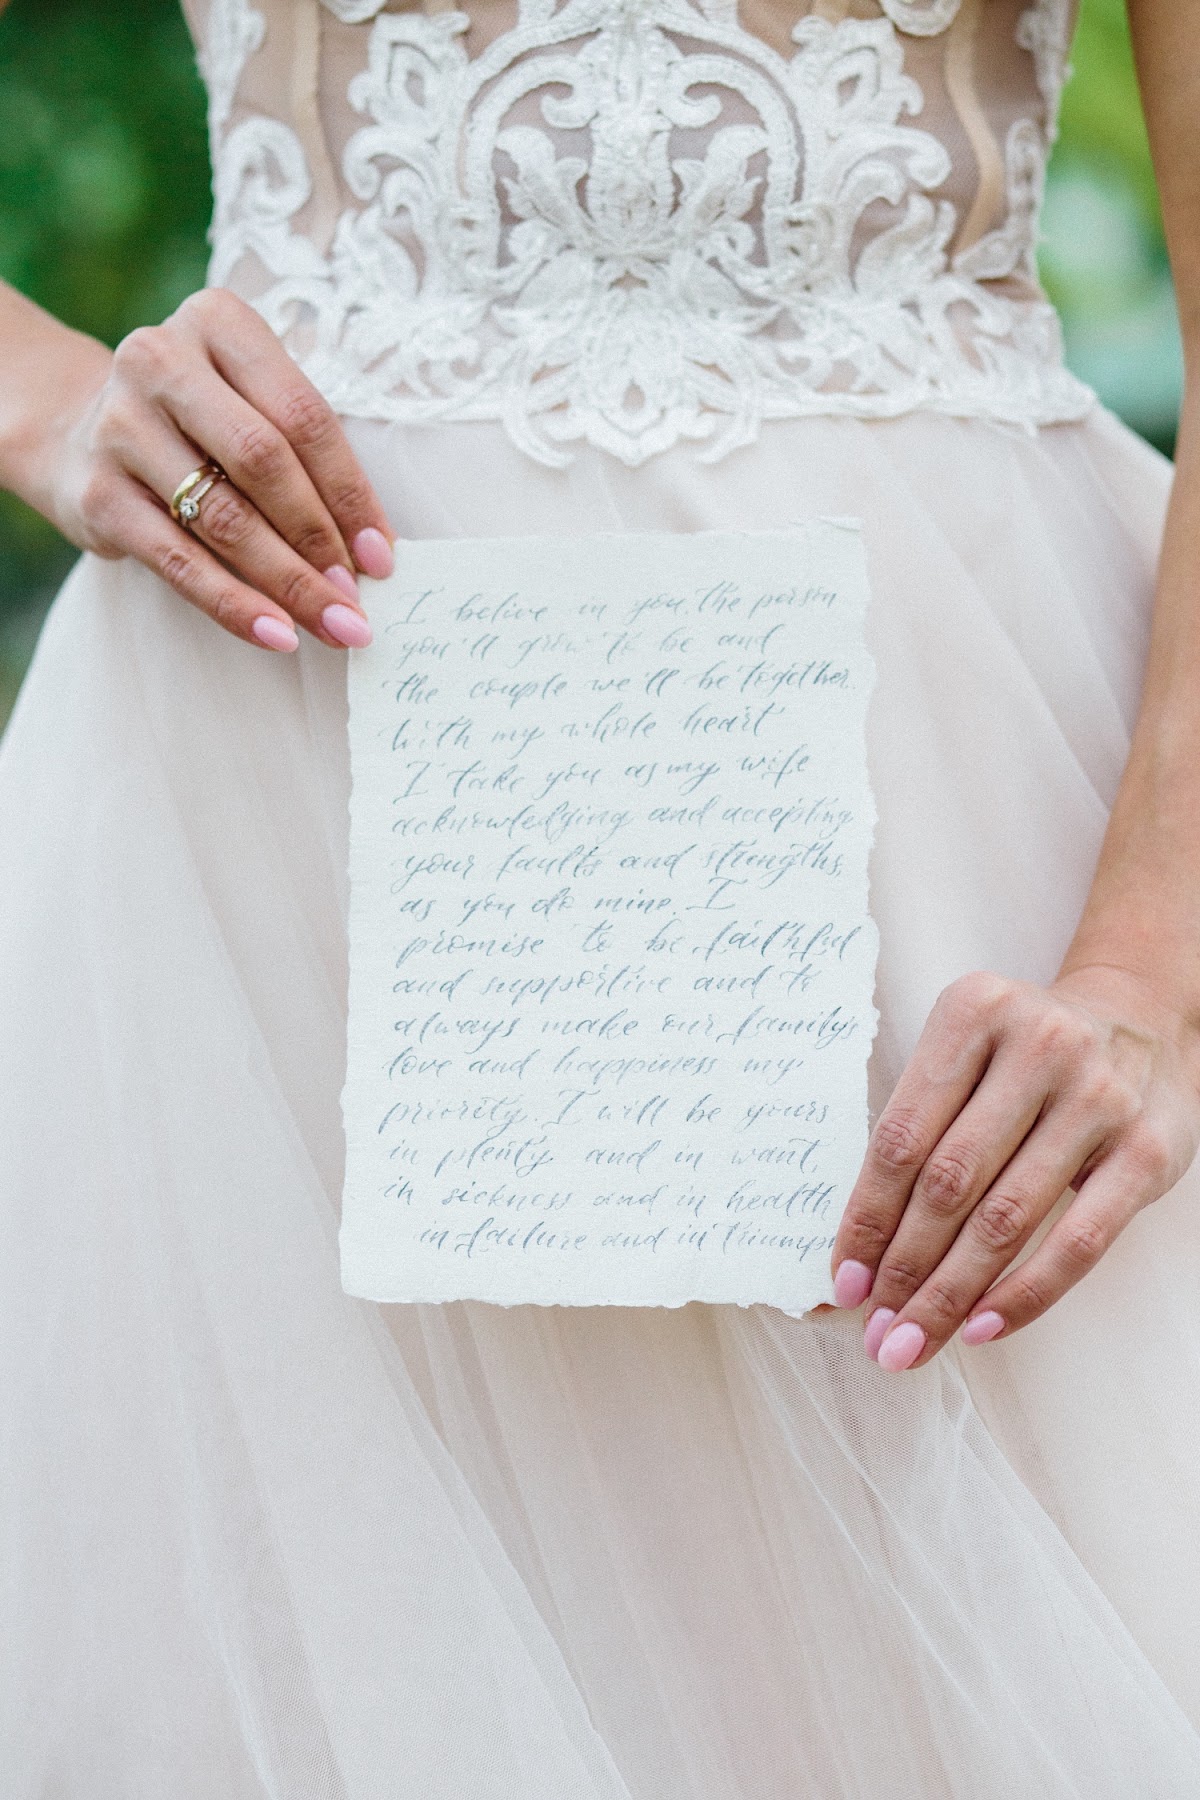 I belive in you, the person
you'll grow to be and
the couple we'll be together.
With my whole heart
I take you as my wife
acknowledging and accepting
your faults and strengths,
as you do mine. I
promise to be faithful
and supportive and to
always make our family's
love and happiness my
priority. I will be yours
in plenty and in want,
in sickness and in health
in failure and in triumph